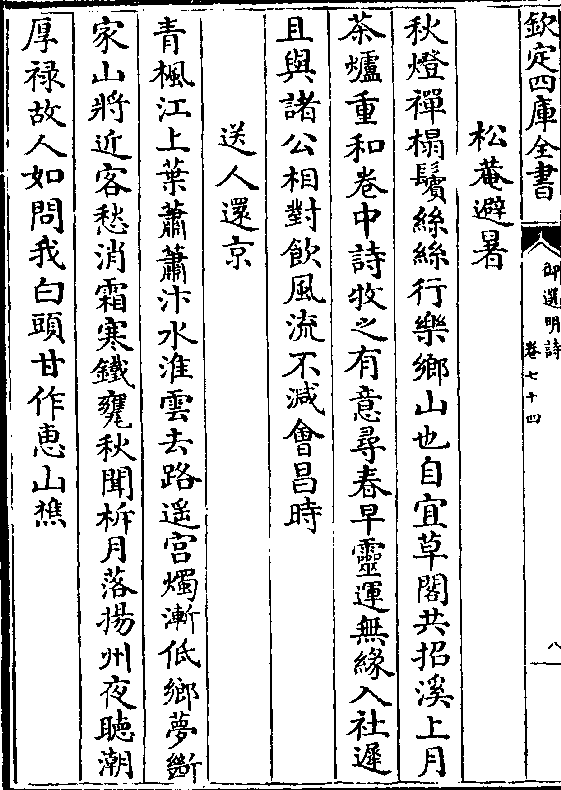 欽定四庫全書
御選明詩
卷七十四
八
松菴避暑
秋燈禪榻鬢絲絲行樂鄉山也自宜草閣共招溪上月
茶爐重和卷中詩牧之有意尋春早靈運無緣入社遲
且與諸公相對飲風流不減會昌時
送人還京
青楓江上葉蕭蕭汴水淮雲去路遥宫燭漸低鄉夢斷
家山將近客愁消霜寒鐵甕秋聞柝月落揚州夜聽潮
厚禄故人如問我白頭甘作惠山樵